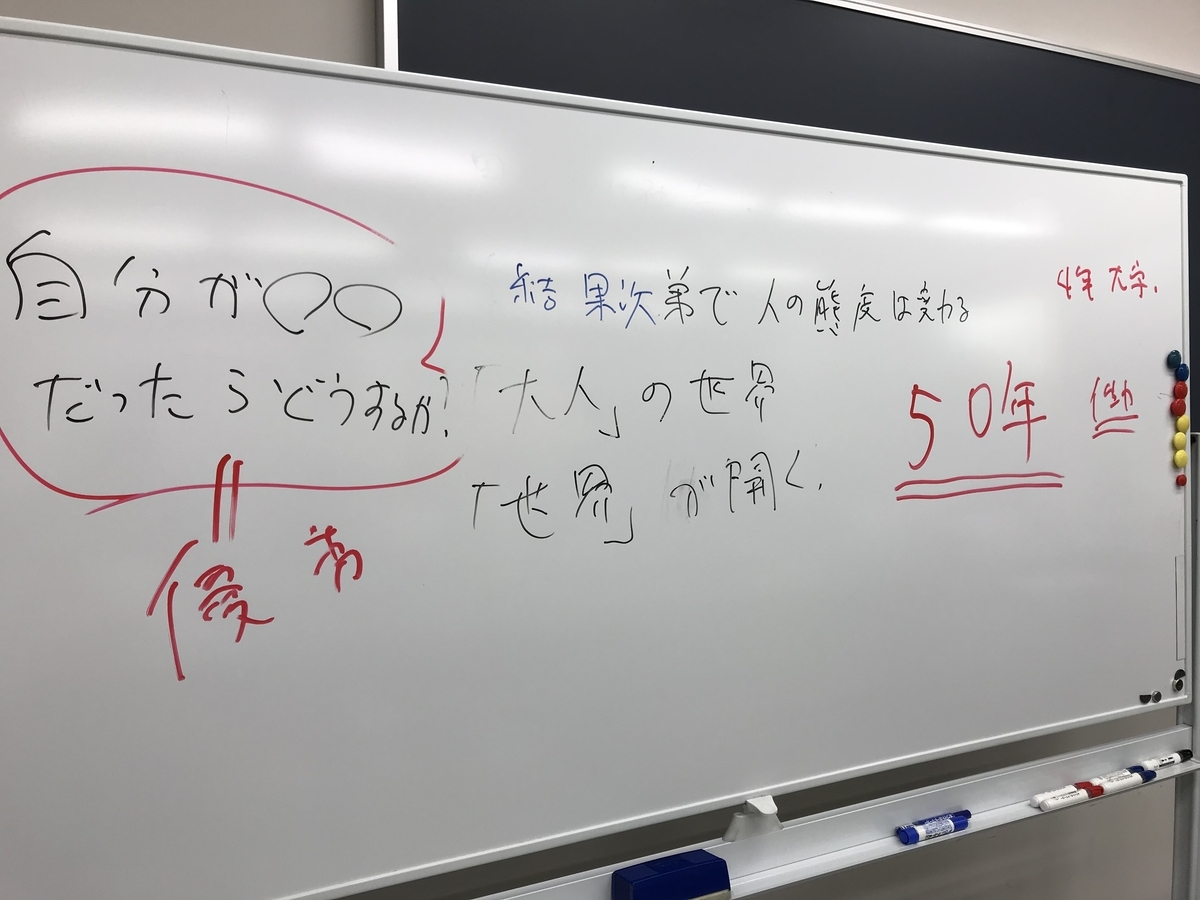 自分が○○
だったらどうするか?
優
結果次第で人の態度は変わる
「大人」の世界
「世界」が開く.
4年 大学.
50年 働